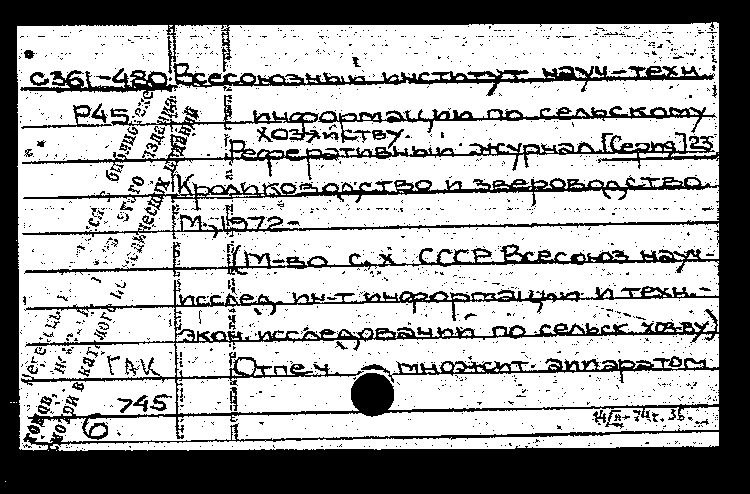 С361-480 Всесоюзный институт науч-техн.
Р45 информации по сельскому
хозяйству.
Реферативный журнал. [Серия] 23
Кролиководство и звероводство.
М., 1972-
(М-во с.х СССР. Всесоюз науч-
исслед. ин-т информации и техн.-
экон. исследований по сельск. хоз-ву)
ГАК Отпеч. множит. аппаратом
745
6
библиотеке
этого издания
смотри в каталоге периодических изданий
томов,